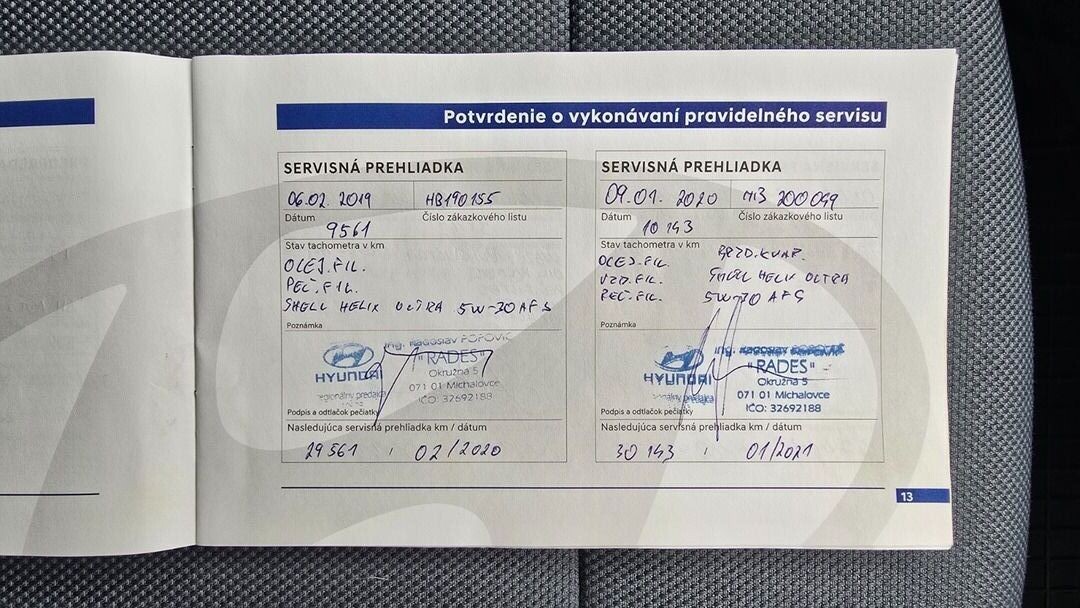 Potvrdenie o vykonávaní pravidelného servisu
SERVISNÁ PREHLIADKA
06.02. 2019 HB190155
Dátum Číslo zákazkového listu
9561
Stav tachometra v km
OLEJ.FIL.
PEĽ.FIL.
SHELL HELIX ULTRA 5W-30 AFS
Poznámka
Ing. Ragoslav POPOVIČ
"RADES"
Okružná 5
071 01 Michalovce
IČO: 32692188
HYUNDAI
regionálny predajca
Podpis a odtlačok pečiatky
Nasledujúca servisná prehliadka km / dátum
29561 / 02/2020
SERVISNÁ PREHLIADKA
09.01. 2020 MB 200099
Dátum Číslo zákazkového listu
10143
Stav tachometra v km
OLEJ.FIL. BRZD.KVAP.
VZD.FIL. SHELL HELIX ULTRA
PEĽ.FIL. 5W-30 AFS
Poznámka
Ing. Ragoslav
"RADES"
Okružná 5
071 01 Michalovce
IČO: 32692188
HYUNDAI
regionálny predajca
Podpis a odtlačok pečiatky
Nasledujúca servisná prehliadka km / dátum
30143 / 01/2021
13